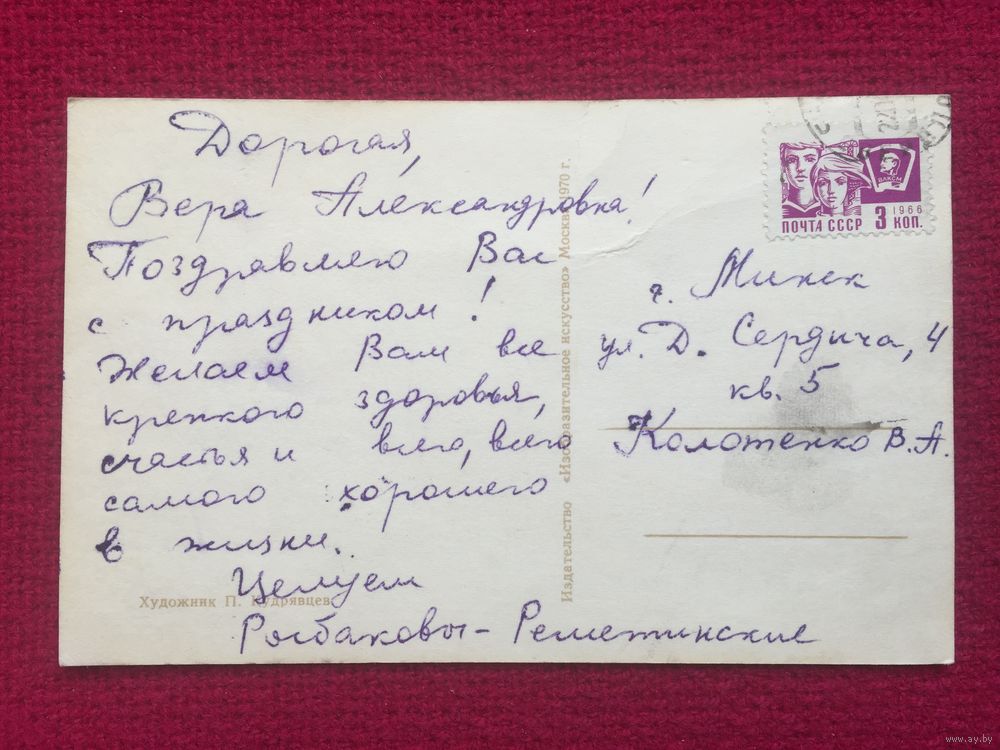 Дорогая,
Вера Александровна!
Поздравляю Вас
с праздником!
Желаем Вам все
крепкого здоровья,
счастья и всего, всего
самого хорошего
в жизни.
Целуем
Рыбаковы-Реметинские
Художник П. Кудрявцев
Издательство «Изобразительное искусство» Москва 1970 г.
ВЛКСМ
1966
ПОЧТА СССР 3 КОП.
г. Минск
ул. Д. Сердича, 4
кв. 5
Колотенко В.А.
www.ay.by